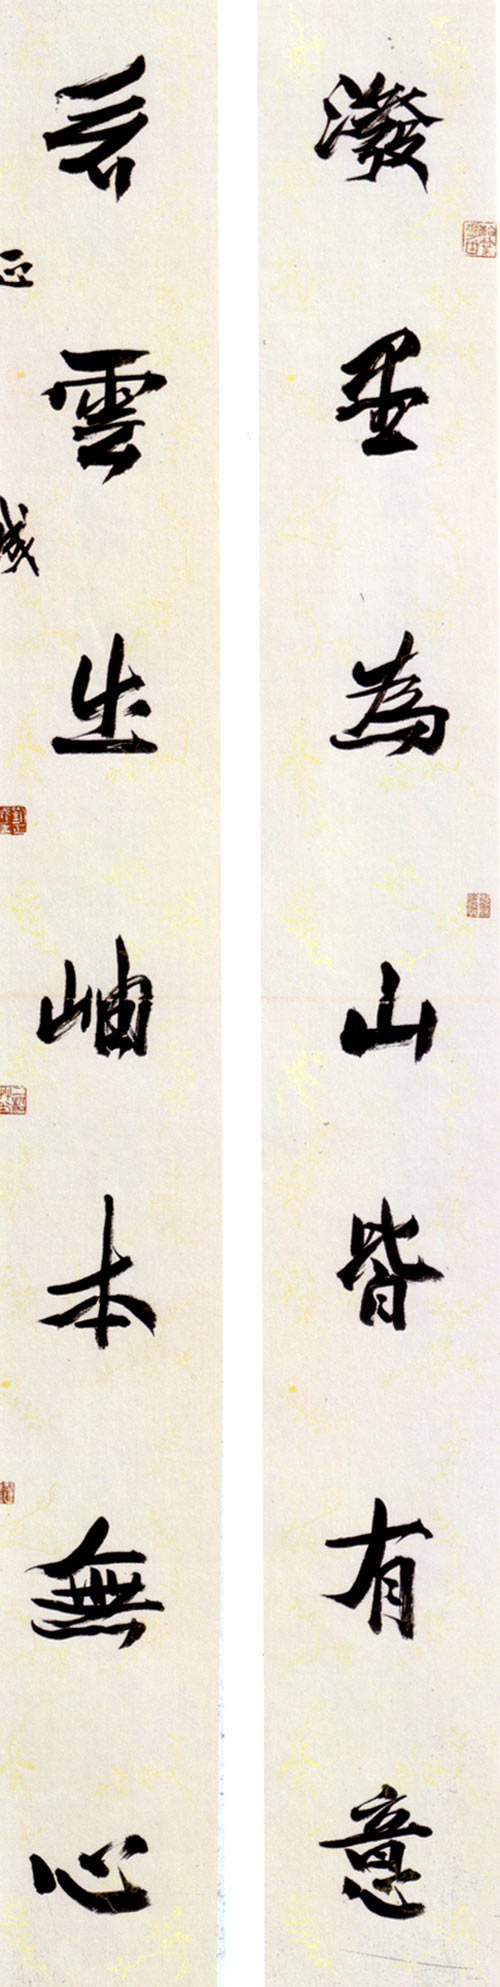 潑墨為山皆有意
看雲出岫本無心
正